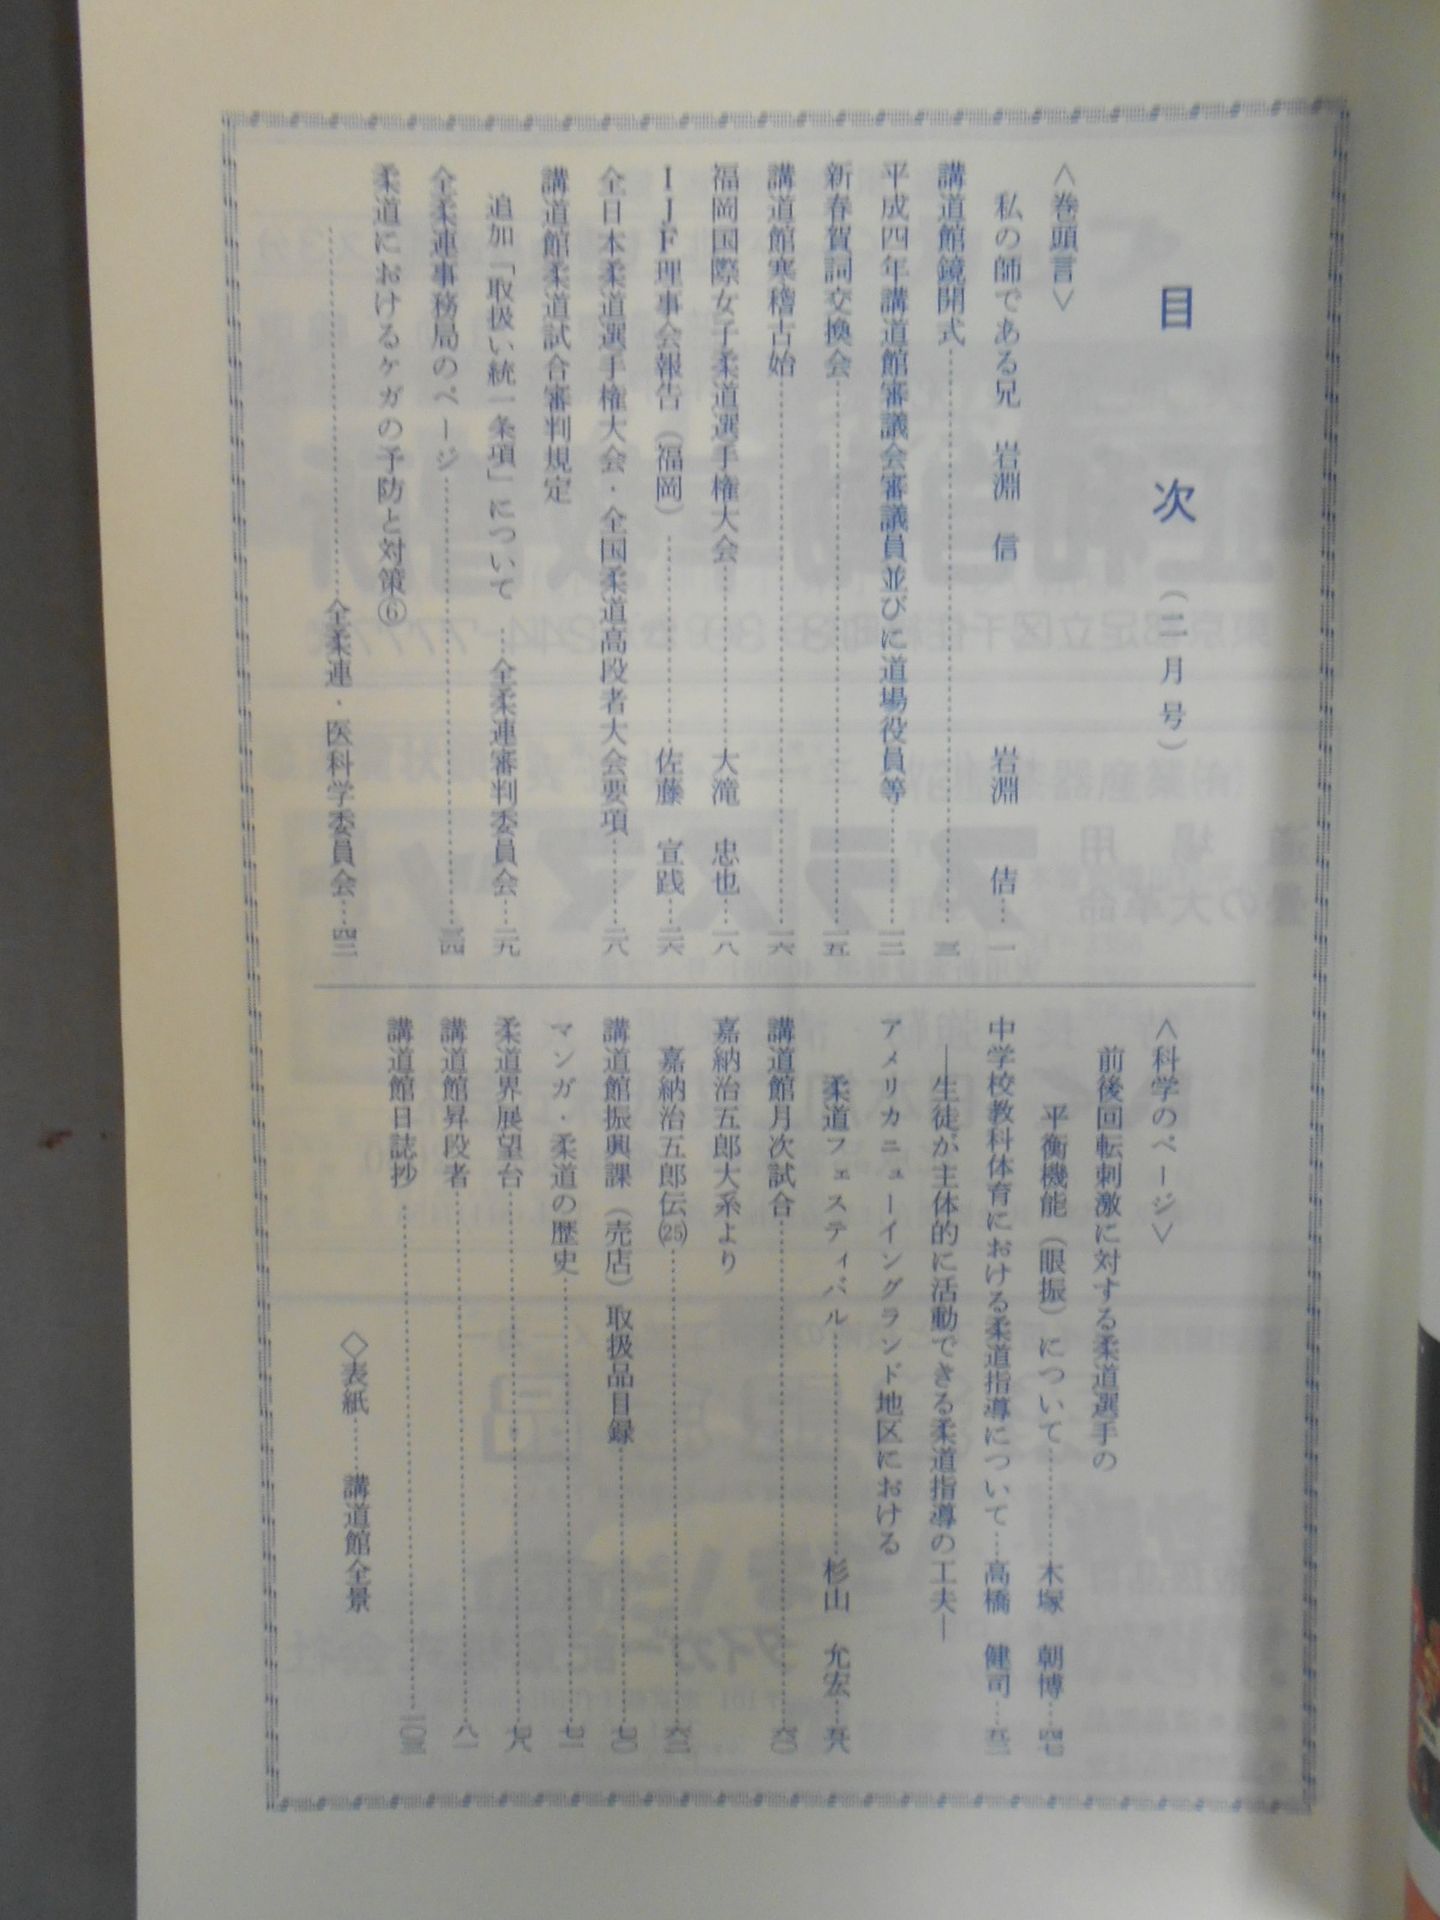 目次（二月号）
＜巻頭言＞
私の師である兄 岩淵 信 岩淵 佶…一
講道館鏡開式…三
平成四年講道館審議会審議員並びに道場役員等…一二
新春賀詞交換会…一五
講道館寒稽古始…一六
福岡国際女子柔道選手権大会…大滝 忠也…一八
IJF理事会報告（福岡）…佐藤 宣践…二六
全日本柔道選手権大会・全国柔道高段者大会要項…二八
講道館柔道試合審判規定
追加「取扱い統一条項」について…全柔連審判委員会…二九
全柔連事務局のページ…三四
柔道におけるケガの予防と対策⑥
…全柔連・医科学委員会…四三
＜科学のページ＞
前後回転刺激に対する柔道選手の
平衡機能（眼振）について…木塚 朝博…四七
中学校教科体育における柔道指導について…高橋 健司…五三
―生徒が主体的に活動できる柔道指導の工夫―
アメリカニューイングランド地区における
柔道フェスティバル…杉山 允宏…五八
講道館月次試合…六〇
嘉納治五郎大系より
嘉納治五郎伝(25)…六二
講道館振興課（売店）取扱品目録…七〇
マンガ・柔道の歴史…七一
柔道界展望台…七八
講道館昇段者…八一
講道館日誌抄…一〇三
◇表紙……講道館全景